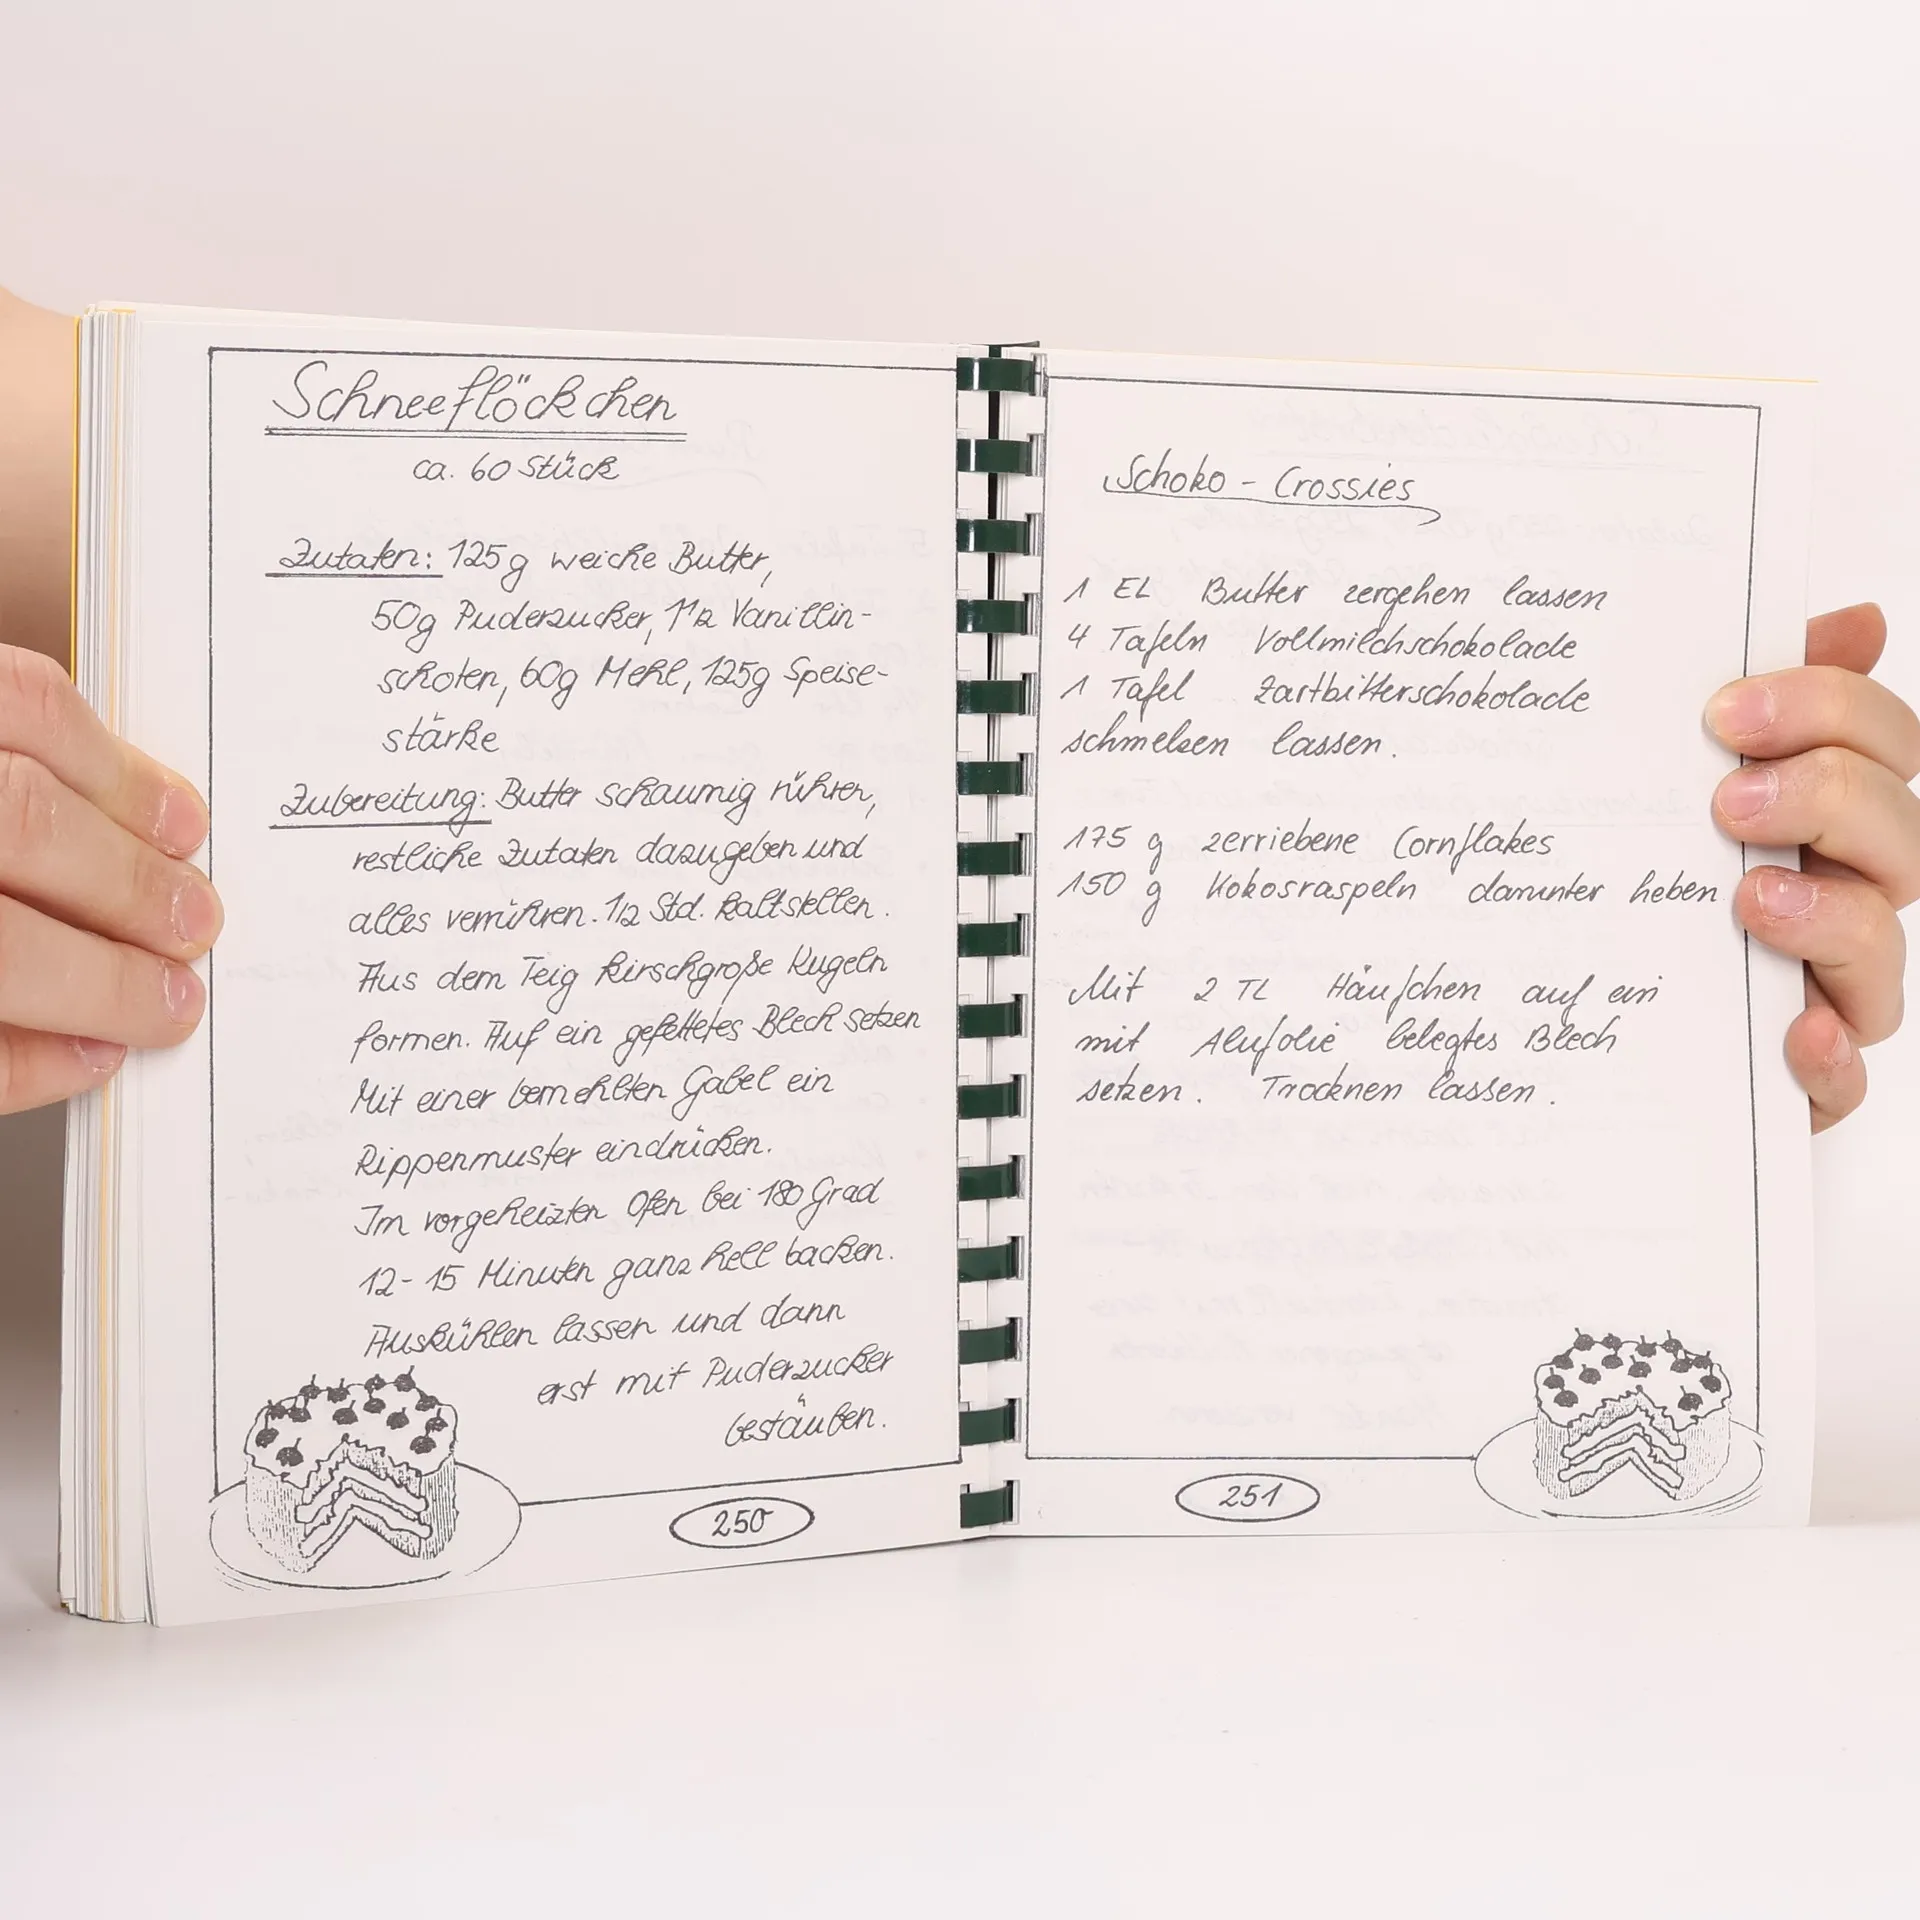 Schneeflöckchen
ca. 60 Stück
Zutaten: 125g weiche Butter,
50g Puderzucker, 1 1/2 Vanillin-
schoten, 60g Mehl, 125g Speise-
stärke
Zubereitung: Butter schaumig rühren,
restliche Zutaten dazugeben und
alles verrühren. 1/2 Std. kaltstellen.
Aus dem Teig kirschgroße Kugeln
formen. Auf ein gefettetes Blech setzen
Mit einer bemehlten Gabel ein
Rippenmuster eindrücken.
Im vorgeheizten Ofen bei 180 Grad
12-15 Minuten ganz hell backen.
Auskühlen lassen und dann
erst mit Puderzucker
bestäuben.
250
Schoko - Crossies
1 EL Butter zergehen lassen
4 Tafeln Vollmilchschokolade
1 Tafel Zartbitterschokolade
schmelzen lassen.
175 g zerriebene Cornflakes
150 g Kokosraspeln darunter heben
Mit 2 TL Häufchen auf ein
mit Alufolie belegtes Blech
setzen. Trocknen lassen.
251